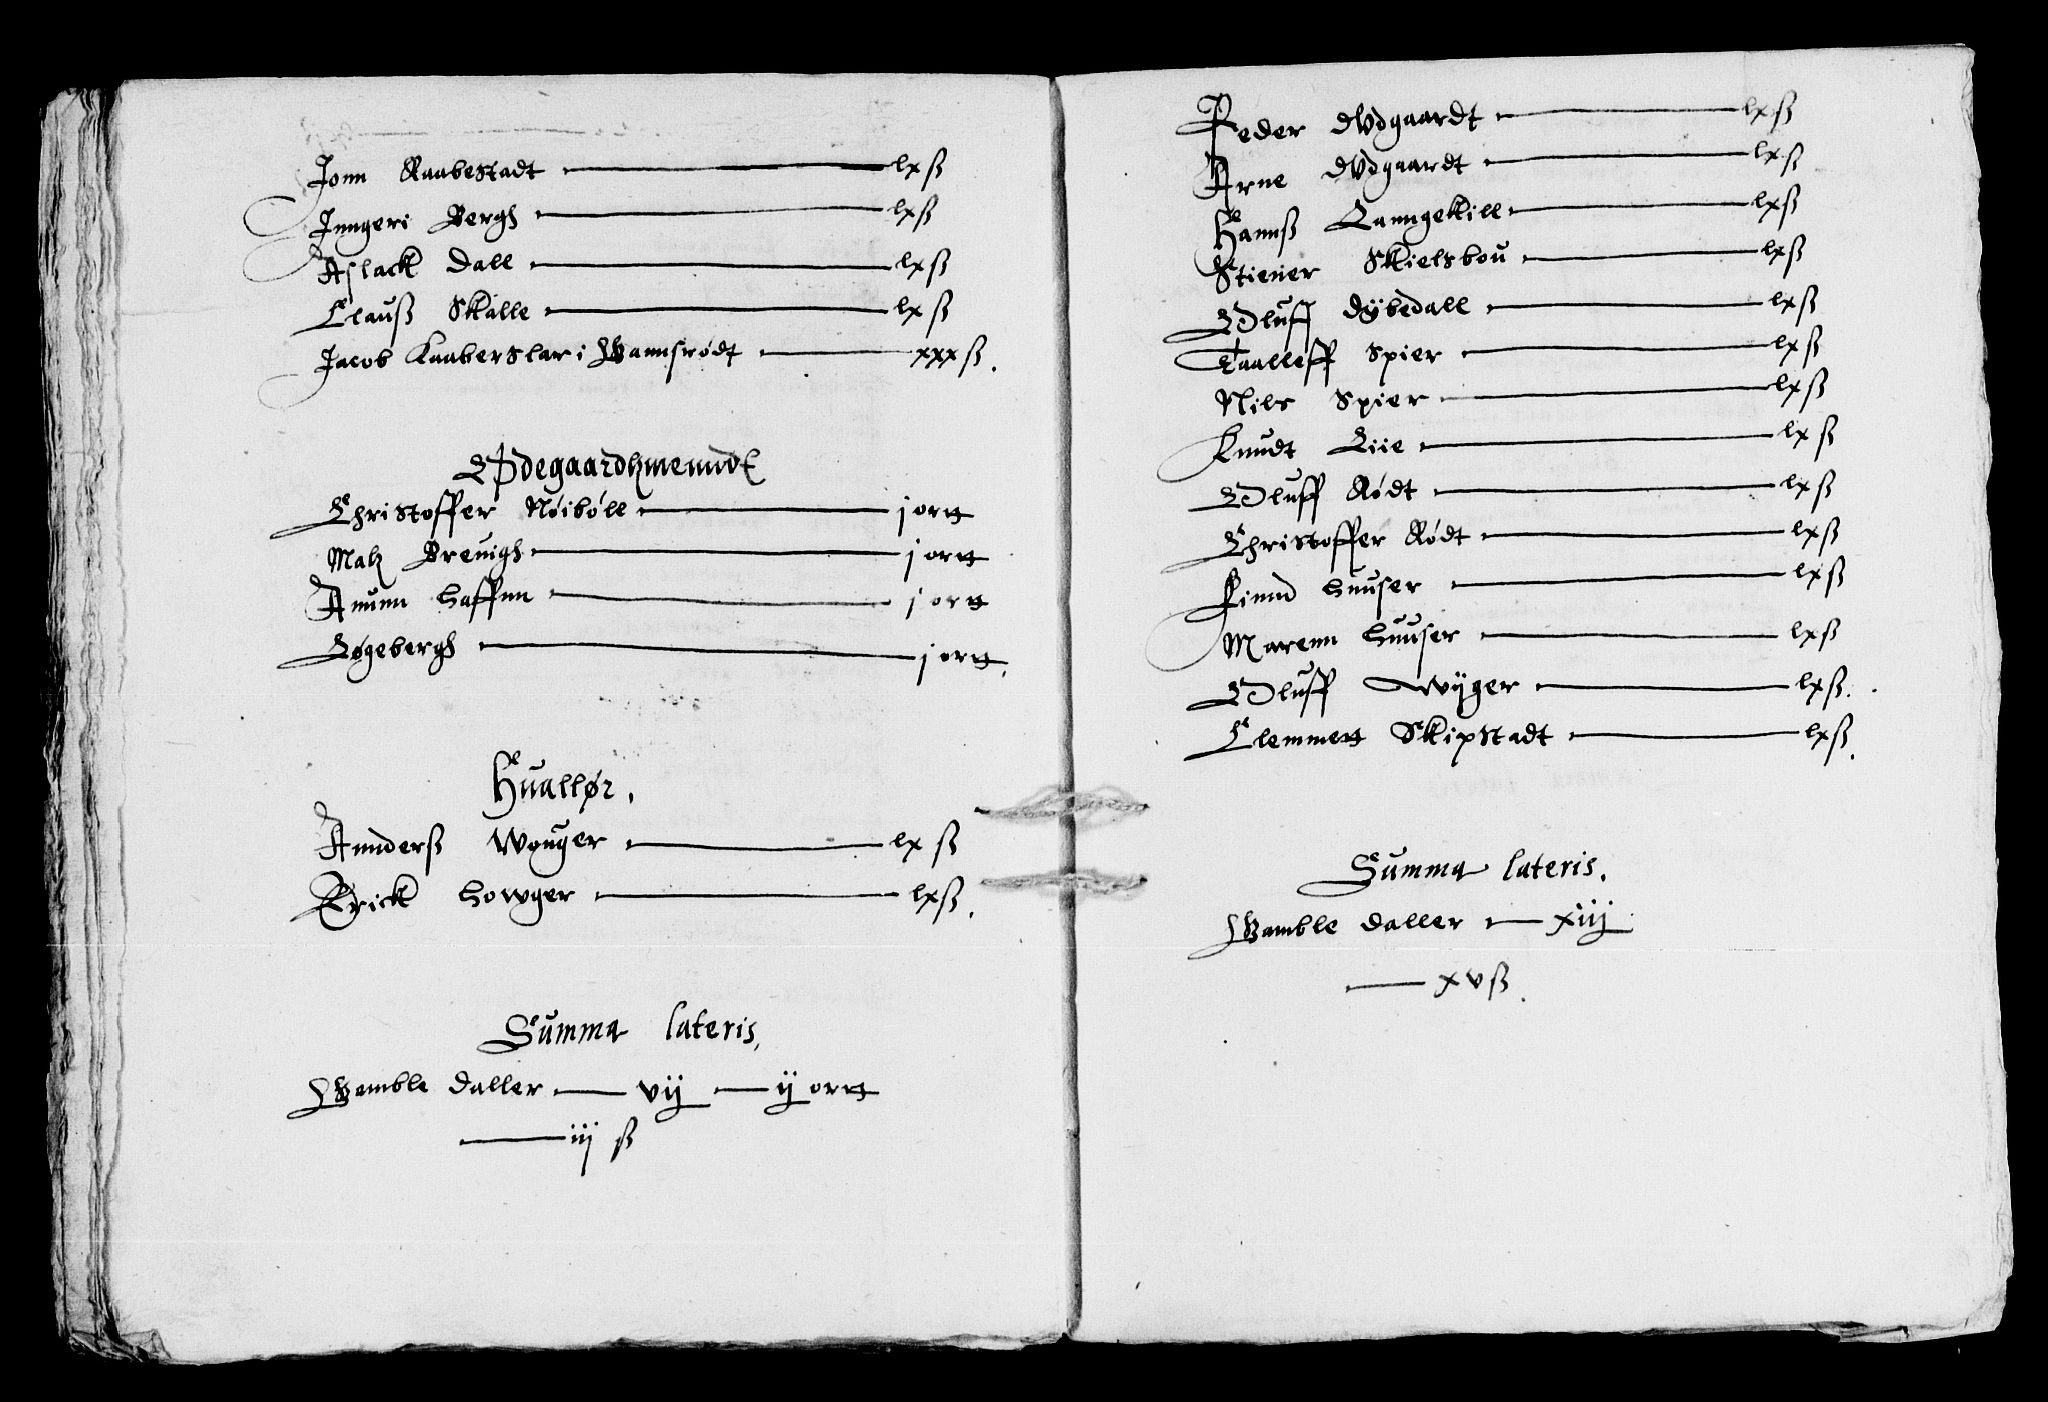 Jonn Raabestadt — lx ß
Jnngeri Bergh — lx ß
Aslack Dall — lx ß
Clauß Skalle — lx ß
Jacob Kaaberslar i Wannsrødt — xxx ß.
Ødegaardtzmenndt
Christoffer Nøibøll — j ortt
Matz Breuigh — j ortt
Anunn Haffnn — j ortt
Løgebergh — j ortt.
Huallør.
Annderß Wouger — lx ß
Erick Howger — lx ß.
Summa lateris,
Gamble daller — vij — ij ortt
— iij ß
Peder Ødgaardt — lx ß
Arne Ødgaardt — lx ß
Hannß Lanngekill — lx ß
Stiener Skielsbou — lx ß
Oluff Dybedall — lx ß
Taalleff Spier — lx ß
Nils Spier — lx ß
Knudt Liie — lx ß
Oluff Rødt — lx ß
Christoffer Rødt — lx ß
Finnd Huuser — lx ß
Marenn Huuser — lx ß
Oluff Wyger — lx ß.
Clemmett Skipstadt — lx ß.
Summa lateris.
Gamble daller — xiij
— xv ß.